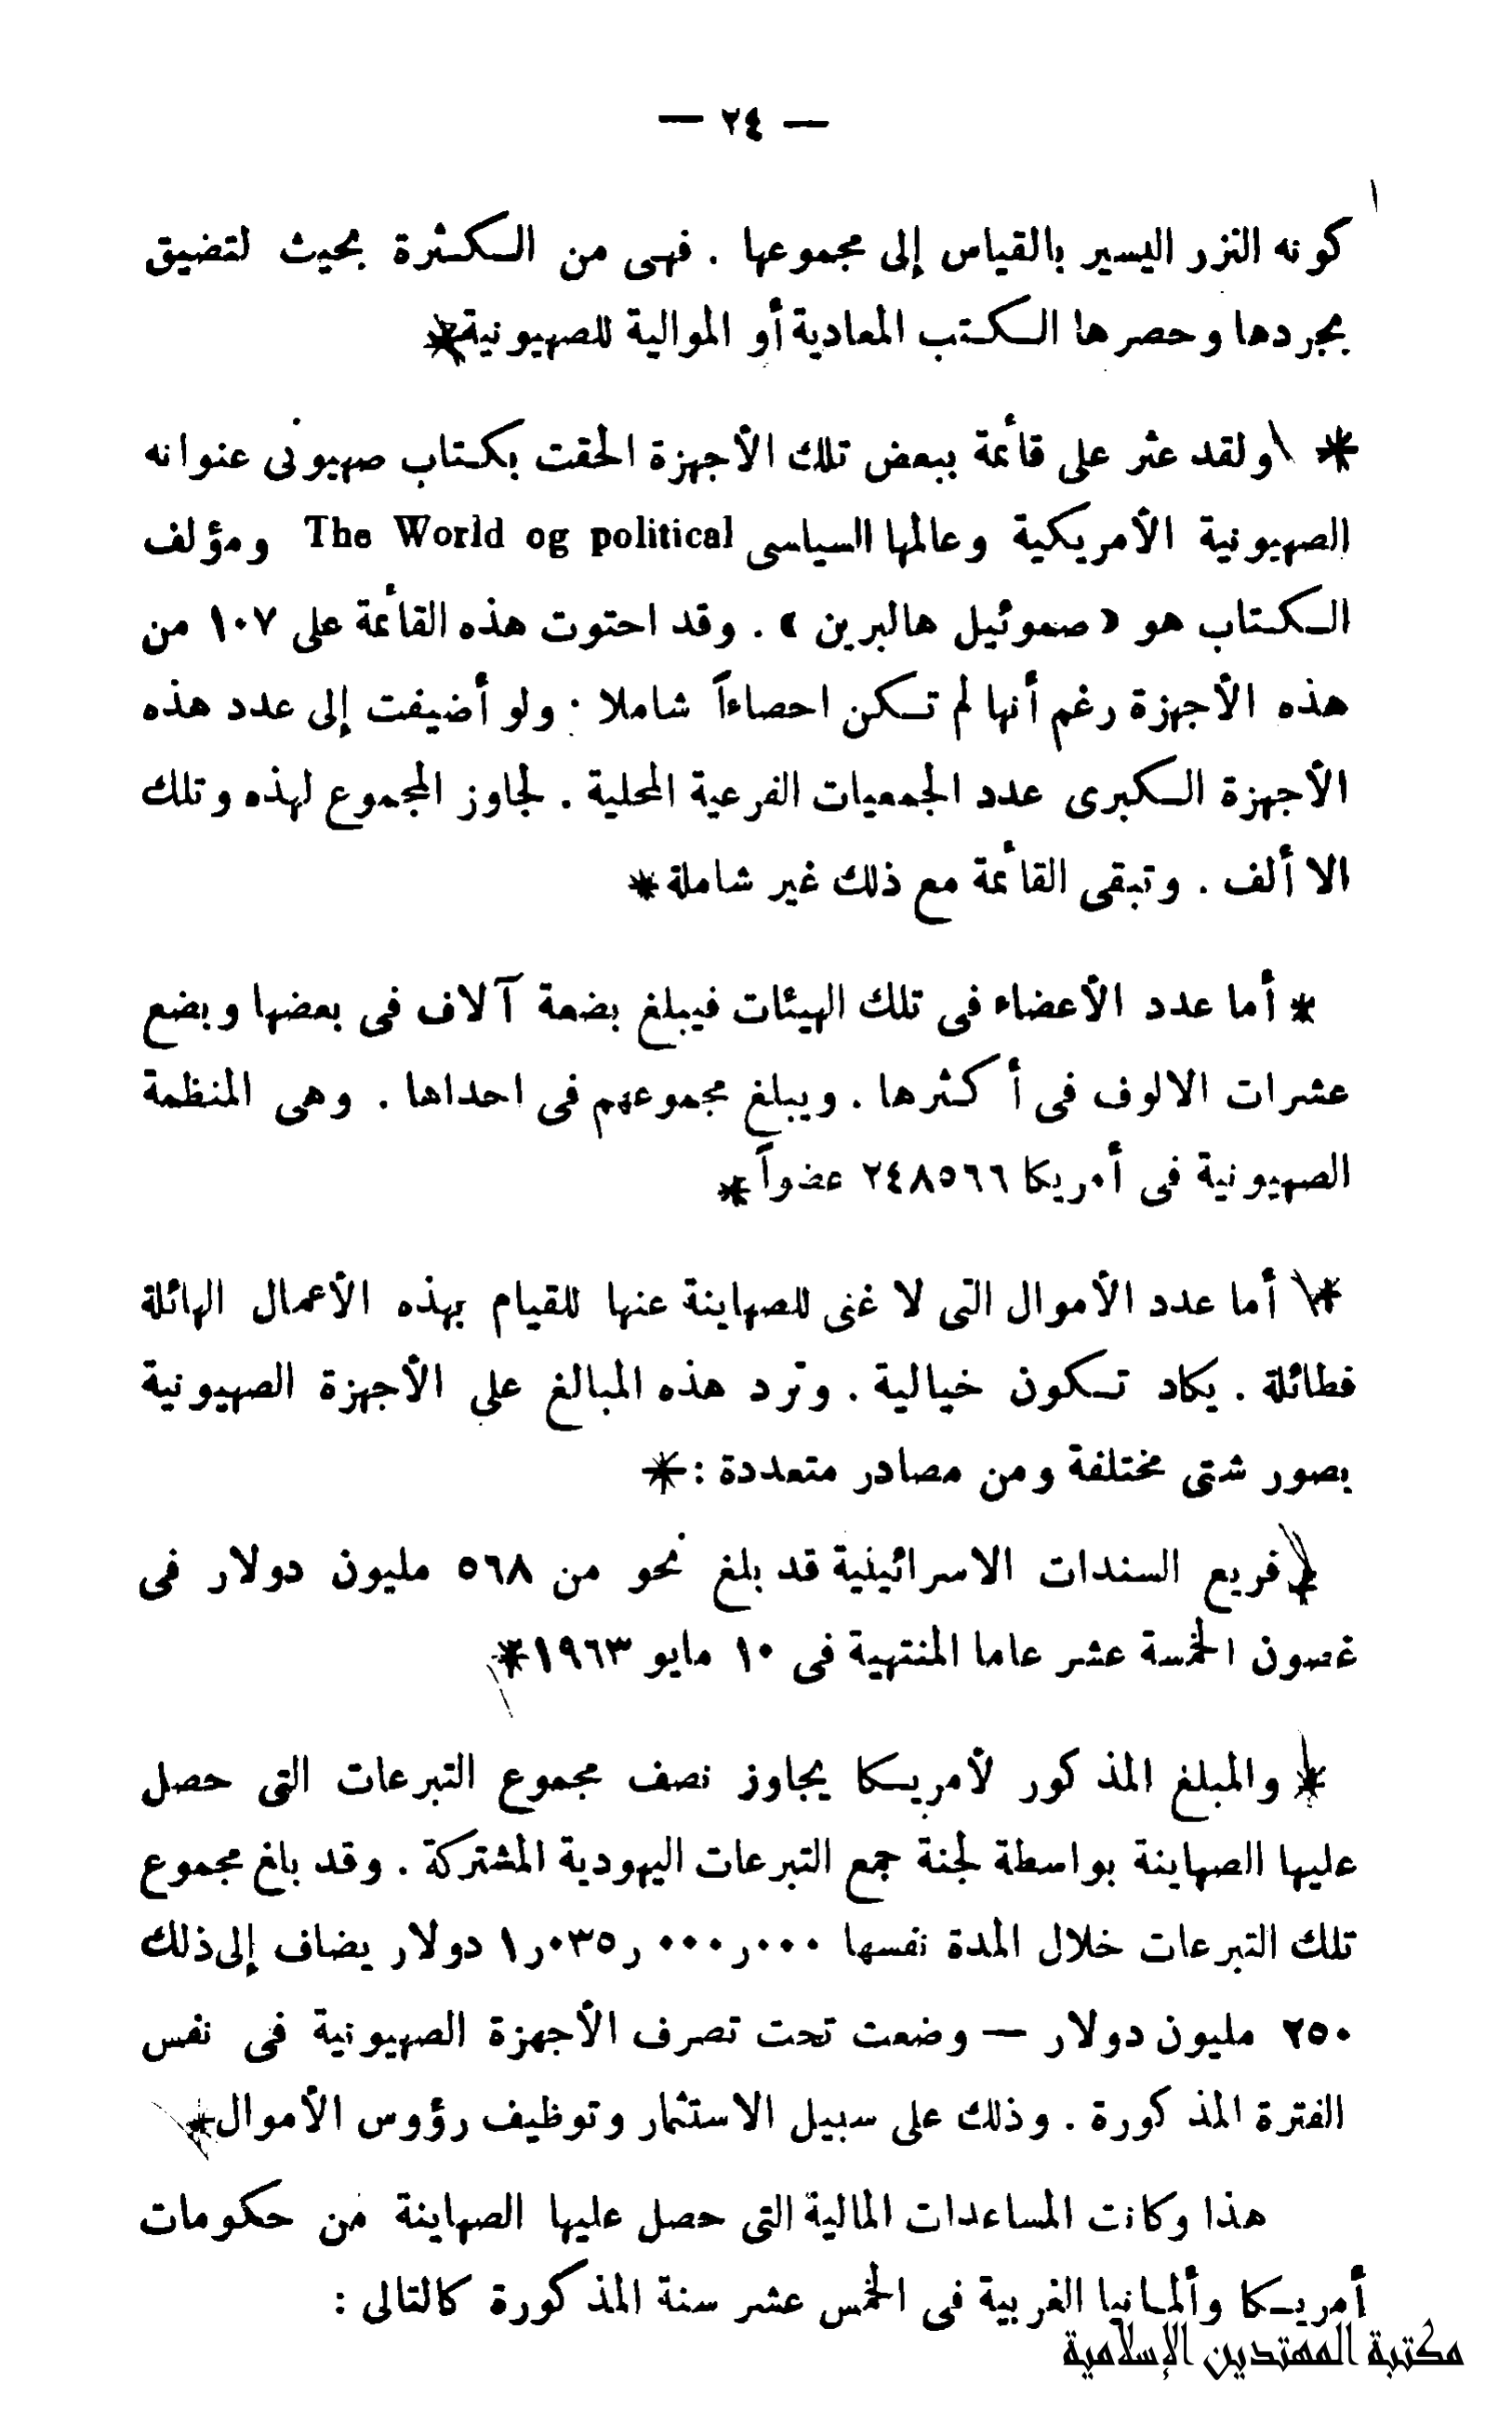 — ٢٤ —
كونه النزر اليسير بالقياس إلى مجموعها . فهى من الكثرة بحيث لتضيق
بجردها وحصرها الكتب المعادية أو الموالية للصهيونية*
* ولقد عثر على قائمة ببعض تلك الأجهزة الحقت بكتاب صهيونى عنوانه
الصهيونية الأمريكية وعالمها السياسى The World og political ومؤلف
الكتاب هو « صموئيل هالبرين » . وقد احتوت هذه القائمة على ١٠٧ من
هذه الأجهزة رغم أنها لم تكن احصاءاً شاملا . ولو أضيفت إلى عدد هذه
الأجهزة الكبرى عدد الجمعيات الفرعية المحلية . لجاوز المجموع لهذه وتلك
الا ألف . وتبقى القائمة مع ذلك غير شاملة*
* أما عدد الأعضاء فى تلك الهيئات فيبلغ بضعة آلاف فى بعضها وبضع
عشرات الالوف فى أكثرها . ويبلغ مجموعهم فى احداها . وهى المنظمة
الصهيونية فى أمريكا ٢٤٨٥٦٦ عضواً*
* أما عدد الأموال التى لا غنى للصهاينة عنها للقيام بهذه الأعمال الهائلة
فطائلة . يكاد تكون خيالية . وترد هذه المبالغ على الأجهزة الصهيونية
بصور شتى مختلفة ومن مصادر متعددة :*
* فريع السندات الاسرائيلية قد بلغ نحو من ٥٦٨ مليون دولار فى
غصون الخمسة عشر عاما المنتهية فى ١٠ مايو ١٩٦٣*
* والمبلغ المذكور لأمريكا يجاوز نصف مجموع التبرعات التى حصل
عليها الصهاينة بواسطة لجنة جمع التبرعات اليهودية المشتركة . وقد بلغ مجموع
تلك التبرعات خلال المدة نفسها ٠٠٠ر٠٠٠ر٠٣٥ر١ دولار يضاف إلى ذلك
٢٥٠ مليون دولار — وضعت تحت تصرف الأجهزة الصهيونية فى نفس
الفترة المذكورة . وذلك على سبيل الاستثمار وتوظيف رؤوس الأموال*
هذا وكانت المساعدات المالية التى حصل عليها الصهاينة من حكومات
أمريكا وألمانيا الغربية فى الخمس عشر سنة المذكورة كالتالى :
مكتبة المهتدين الإسلامية